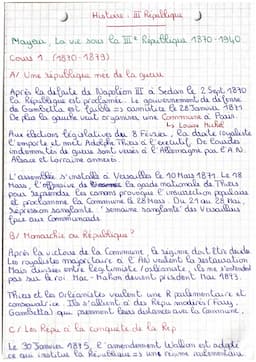 Histoire : III République
Mayeur, La vie sous la IIIe République 1870-1940
Cours 1 (1870-1879)
A/ Une république née de la guerre
Après la défaite de Napoléon III à Sedan le 2 Sept. 1870
la République est proclamée. Le gouvernement de défense
de Gambetta est faible => armistice le 28 Janvier 1871.
De plus la gauche veut organiser une Commune à Paris.
↳ Louise Michel
Aux élections législatives du 8 Février, la droite royaliste
l'emporte et met Adolphe Thiers à l'exécutif. De lourdes
indemnités de guerre sont versées à l'Allemagne par l'A.N.
Alsace et Lorraine annexés.
L'assemblée s'installe à Versailles le 10 Mars 1871. Le 18
Mars, l'offensive de la garde nationale de Thiers
pour reprendre les canons provoque l'insurrection parisienne
et proclamme la Commune le 28 Mars. Du 21 au 28 Mai,
répression sanglante. "semaine sanglante" des Versaillais
face aux Communards
B/ Monarchie ou République ?
Après la victoire de la Commune, le régime doit être
Les royalistes majoritaires à l'AN veulent la restauration
Mais divisés entre légitimiste / orléaniste, ils ne s'entendent
pas sur le roi. Mac-Mahon devient président Mai 1873.
Thiers et les Orléanistes veulent une R parlementaire et
conservatrice. Ils s'allient à des Répu modérés (Ferry,
Gambetta) qui prennent leurs distances avec la Commune.
C/ Les Répu à la conquête de la Rep
Le 30 Janvier 1875, l'amendement Wallon est adopté
ce qui institue la République => une régime